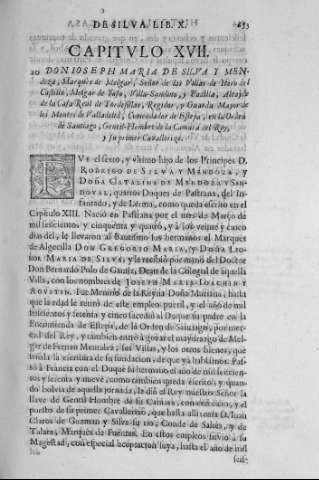 DE SILVA. LIB. X. 633
CAPITVLO XVII.
20 DON IOSEPH MARIA DE SILVA Y MEN-
doza, Marquès de Melgar, Señor de las Villas de Haro del
Castillo, Melgar de Yuso, Villa-Sandino, y Padilla, Alcayde
de la Casa Real de Tordesillas, Regidor, y Guarda Mayor de
los Montes de Valladolid, Comendador de Estepa, en la Orden
de Santiago, Gentil-Hombre de la Camara del Rey,
y su primer Cavallerizo.
FVe el sexto, y vltimo hijo de los Principes D.
RODRIGO DE SILVA Y MENDOZA, y
DOñA CATALINA DE MENDOZA Y SAN-
DOVAL, quartos Duques de Pastrana, del In-
fantado, y de Lerma, como queda escrito en el
Capitulo XIII. Nació en Pastrana por el mes de Março de
mil seiscientos, y cinquenta y quatro, y à los veinte y cinco
dias del, le llevaron al Bautismo los hermanos el Marquès
de Algecilla DON GREGORIO MARIA, y DOñA LEO-
NOR MARIA DE SILVA, y le recibiò por mano del Doctor
Don Bernardo Polo de Dean de la Colegial de aquella
Villa, con los nombres de IOSEPH MARIA IOACHIN Y
AGVSTIN. Fue Menino de la Reyna Doña Mariana, hasta
que la edad le retirò de este empleo pueril, y el año de mil
seiscientos y setenta y cinco sucediò al Duque su padre en la
Encomienda de Estepa, de la Orden de Santiago, por mer-
ced del Rey, y tambien entrò à gozar el mayorazgo de Mel-
gar de Fernan Mentalez, sus Villas, y los otros bienes, que
segun la escritura de su fundacion sabe que yà hablamos. Pas-
sò à Francia con el Duque su hermano el año de mil seiscien-
tos y setenta y nueve, como tambien queda escrito; y quan-
do bolviò de aquella jornada, le diò el Rey nuestro Señor la
llave de Gentil-Hombre de su Camara, con exercicio, y el
puesto de su primer Cavallerizo, que hasta alli tenia D. Iuan
Claros de Guzman y Silva su tio, Conde de Saltès, y de
Talara, Marquès de Fuentes. En estos empleos sirviò à su
Magestad, con especial aceptacion suya, hasta el año de mil
seis-